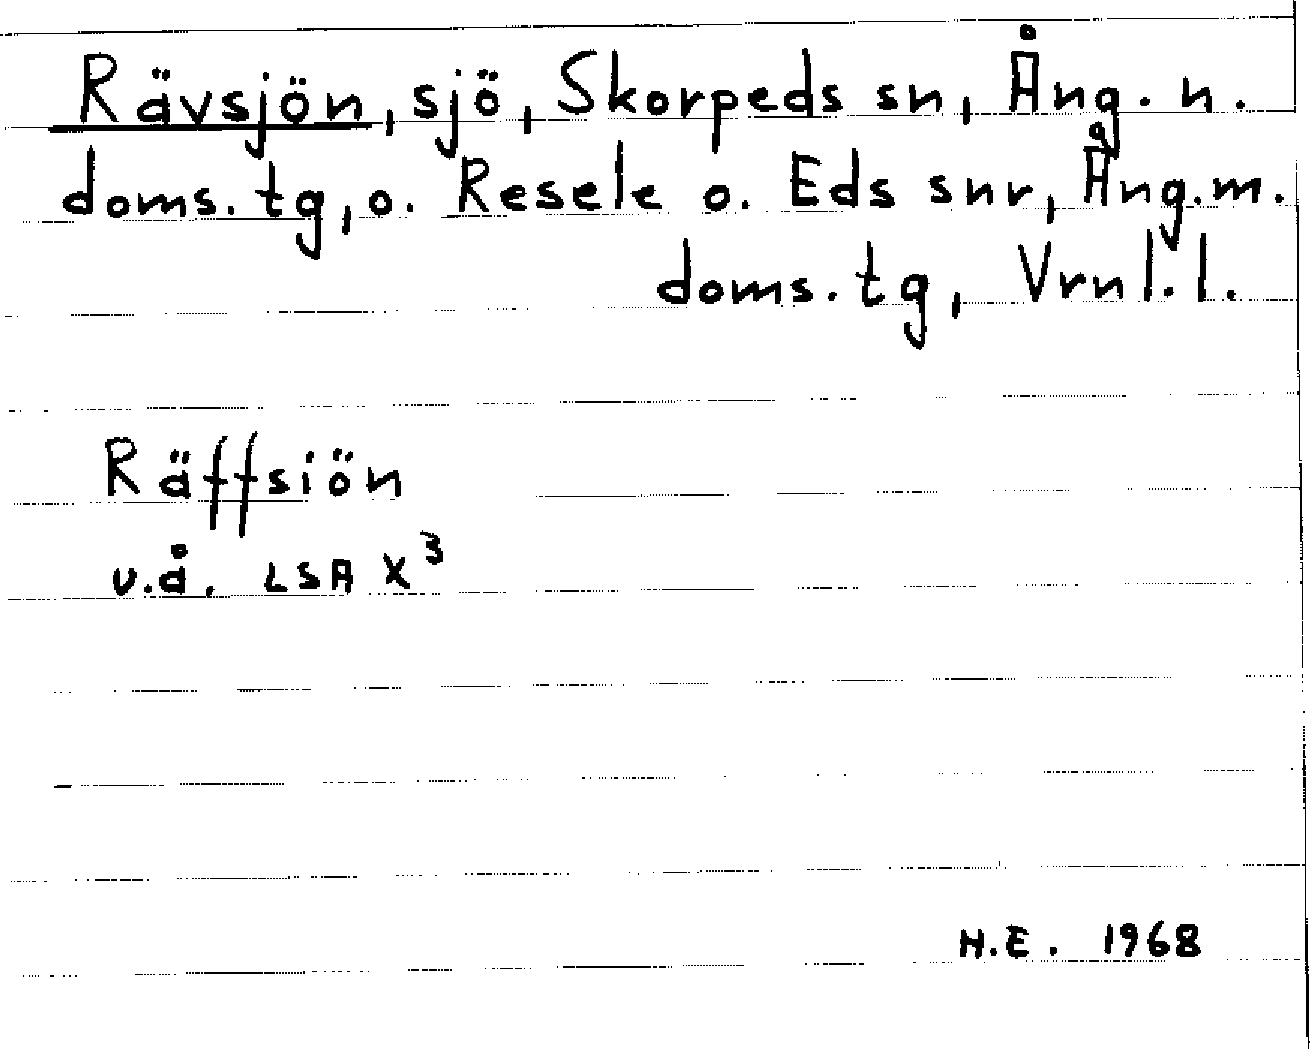 Rävsjön, sjö, Skorpeds sn, Ång. n.
doms. tg, o. Resele o. Eds snr, Ång. m.
doms. tg, Vrnl. l.
Räffsiön
u.å. LSA X³
H.E. 1968